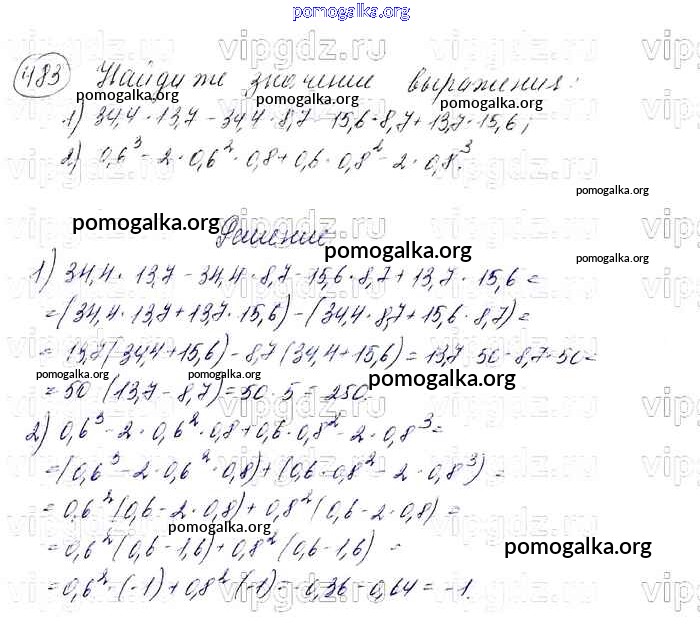 pomogalka.org
483 Найдите значение выражения:
pomogalka.org pomogalka.org pomogalka.org
1) 34,4 · 13,7 - 34,4 · 8,7 - 15,6 · 8,7 + 13,7 · 15,6;
2) 0,6³ - 2 · 0,6² · 0,8 + 0,6 · 0,8² - 2 · 0,8³.
pomogalka.org
pomogalka.org Решение
pomogalka.org pomogalka.org
1) 34,4 · 13,7 - 34,4 · 8,7 - 15,6 · 8,7 + 13,7 · 15,6 =
= (34,4 · 13,7 + 13,7 · 15,6) - (34,4 · 8,7 + 15,6 · 8,7) =
= 13,7(34,4 + 15,6) - 8,7(34,4 + 15,6) = 13,7 · 50 - 8,7 · 50 =
pomogalka.org pomogalka.org pomogalka.org
= 50 (13,7 - 8,7) = 50 · 5 = 250.
2) 0,6³ - 2 · 0,6² · 0,8 + 0,6 · 0,8² - 2 · 0,8³ =
= (0,6³ - 2 · 0,6² · 0,8) + (0,6 · 0,8² - 2 · 0,8³) =
= 0,6² (0,6 - 2 · 0,8) + 0,8² (0,6 - 2 · 0,8) =
pomogalka.org
= 0,6² (0,6 - 1,6) + 0,8² (0,6 - 1,6) =
pomogalka.org
= 0,6² · (-1) + 0,8² · (-1) = -0,36 - 0,64 = -1.
vipgdz.ru